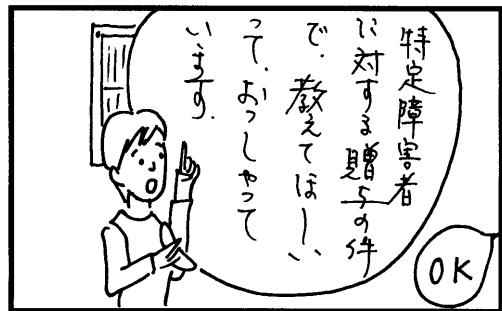 特定障害者
に対する贈与の件
で、教えてほしい
って、おっしゃって
います。
OK